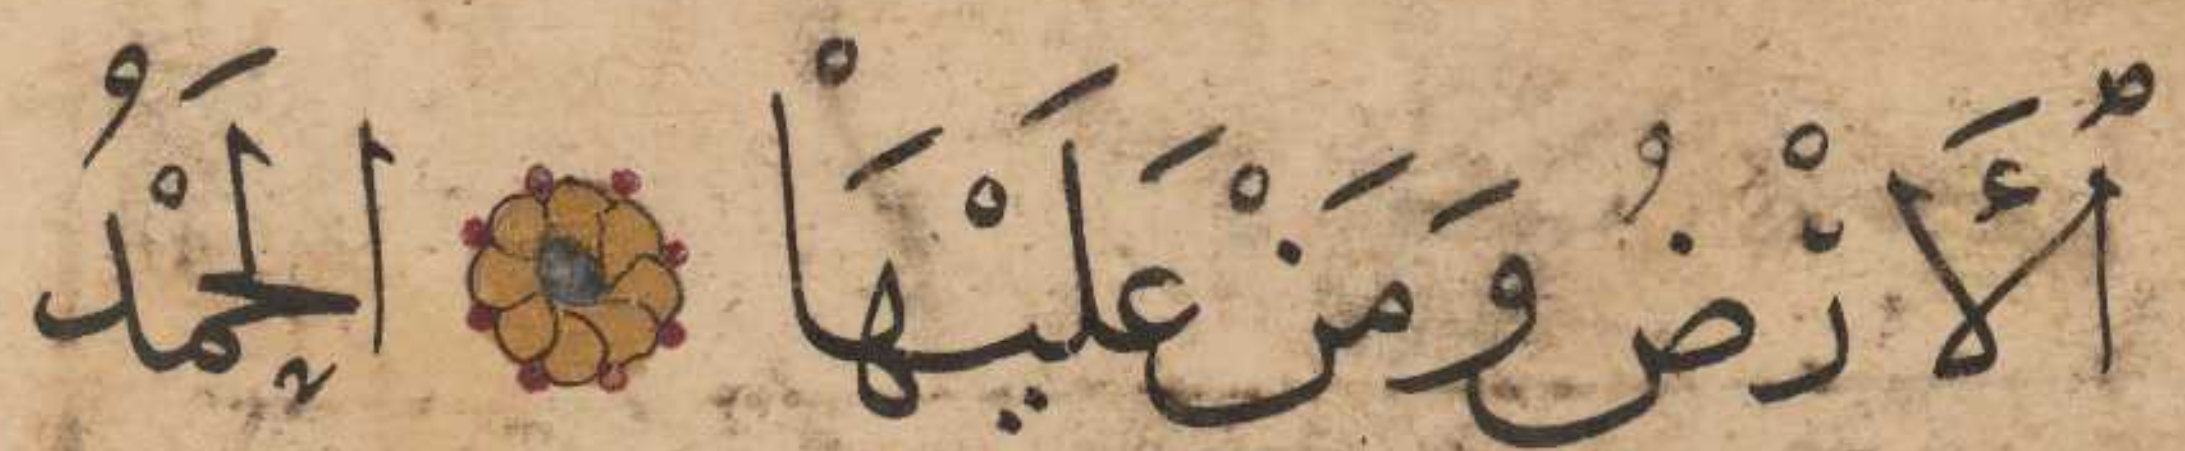 ٱلْأَرْضُ وَمَنْ عَلَيْهَا الْحَمْدُ